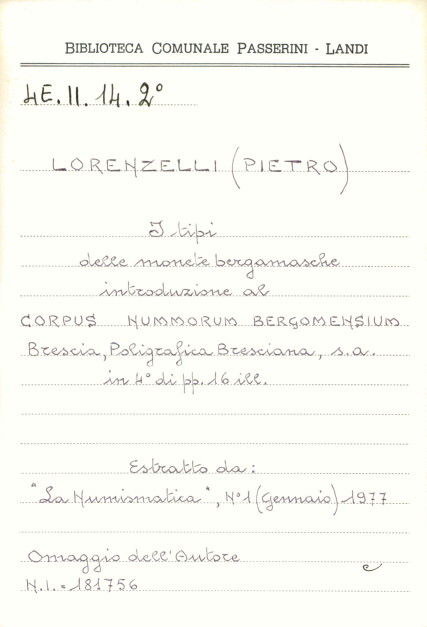 BIBLIOTECA COMUNALE PASSERINI - LANDI
4E. II. 14. 2°
LORENZELLI (PIETRO)
I tipi
delle monete bergamasche
introduzione al
CORPUS NUMMORUM BERGOMENSIUM
Brescia, Poligrafica Bresciana, s.a.
in 4° di pp. 16 ill.
Estratto da:
"La Numismatica", N°1 (Gennaio) 1977
Omaggio dell'Autore
N.I. = 181756